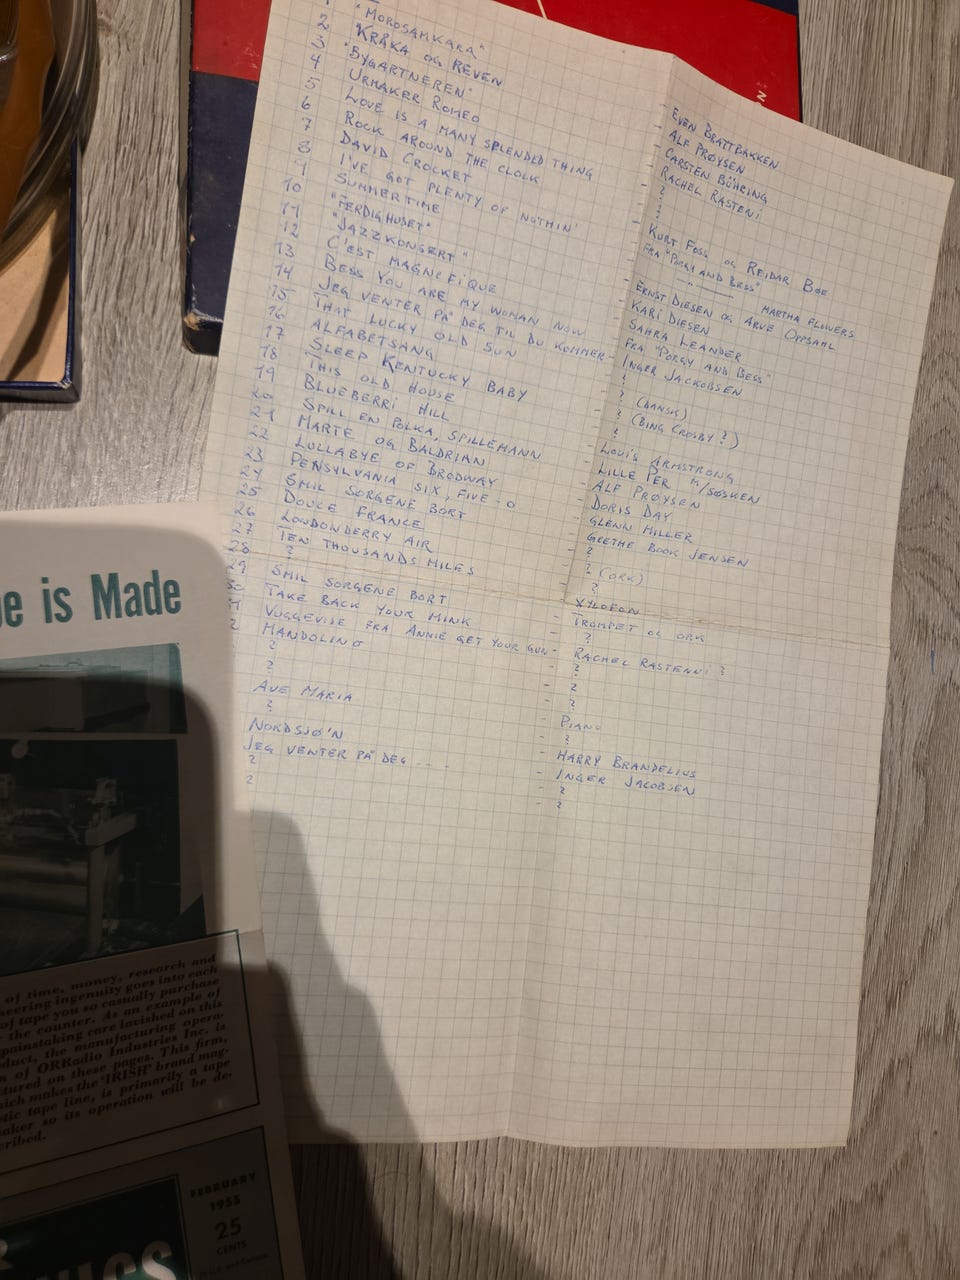 1 "MOROSAMKARA" - EVEN BRATTBAKKEN
2 KRÅKA OG REVEN - ALF PRØYSEN
3 "BYGARTNEREN" - CARSTEN BÜHRING
4 URMAKER ROMEO - RACHEL RASTENI
5 LOVE IS A MANY SPLENDED THING - ?
6 ROCK AROUND THE CLOCK - ?
7 DAVID CROCKET - KURT FOSS OG REIDAR BØE
8 I'VE GOT PLENTY OF NUTHIN' - FRA "PORGY AND BESS"
9 SUMMERTIME - MARTHA FLOWERS
10 "FERDIGHUSET" - ERNST DIESEN OG ARVE OPPSAHL
11 "JAZZKONSERT" - KARI DIESEN
12 C'EST MAGNEFIQUE - SAHRA LEANDER
13 BESS YOU ARE MY WOMAN NOW - FRA "PORGY AND BESS"
14 JEG VENTER PÅ DEG TIL DU KOMMER - INGER JACKOBSEN
15 THAT LUCKY OLD SUN - ?
16 ALFABETSANG - ? (DANSK)
17 SLEEP KENTUCKY BABY - ? (BING CROSBY?)
18 THIS OLD HOUSE - ?
19 BLUEBERRI HILL - LOUIS ARMSTRONG
20 SPILL EN POLKA, SPILLEMANN - LILLE PER M/SØSKEN
21 MARTE OG BALDRIAN - ALF PRØYSEN
22 LULLABYE OF BRODWAY - DORIS DAY
23 PENSYLVANIA SIX, FIVE-O - GLENN MILLER
24 SMIL SORGENE BORT - GRETHE BOOK JENSEN
25 DOUCE FRANCE - ?
26 LONDONDERRY AIR - ? (ORK)
27 TEN THOUSANDS MILES - ?
28 ? - XYLOFON
29 SMIL SORGENE BORT - TROMPET OG ORK
30 TAKE BACK YOUR MINK - ?
VUGGEVISE FRA ANNIE GET YOUR GUN - RACHEL RASTENNI ?
MANDOLINO - ?
? - ?
? - ?
AVE MARIA - PIANO
? - ?
NORDSJØ'N - HARRY BRANDELIUS
JEG VENTER PÅ DEG ---- - INGER JACOBSEN
? - ?
? - ?
is Made
of time, money, research and
neering ingenuity goes into each
of tape you so casually purchase
the counter. As an example of
painstaking care lavished on this
product, the manufacturing opera-
of ORRadio Industries Inc. is
pictured on these pages. This firm,
which makes the 'IRISH' brand mag-
netic tape line, is primarily a tape
maker so its operation will be de-
scribed.
FEBRUARY
1955
25
CENTS